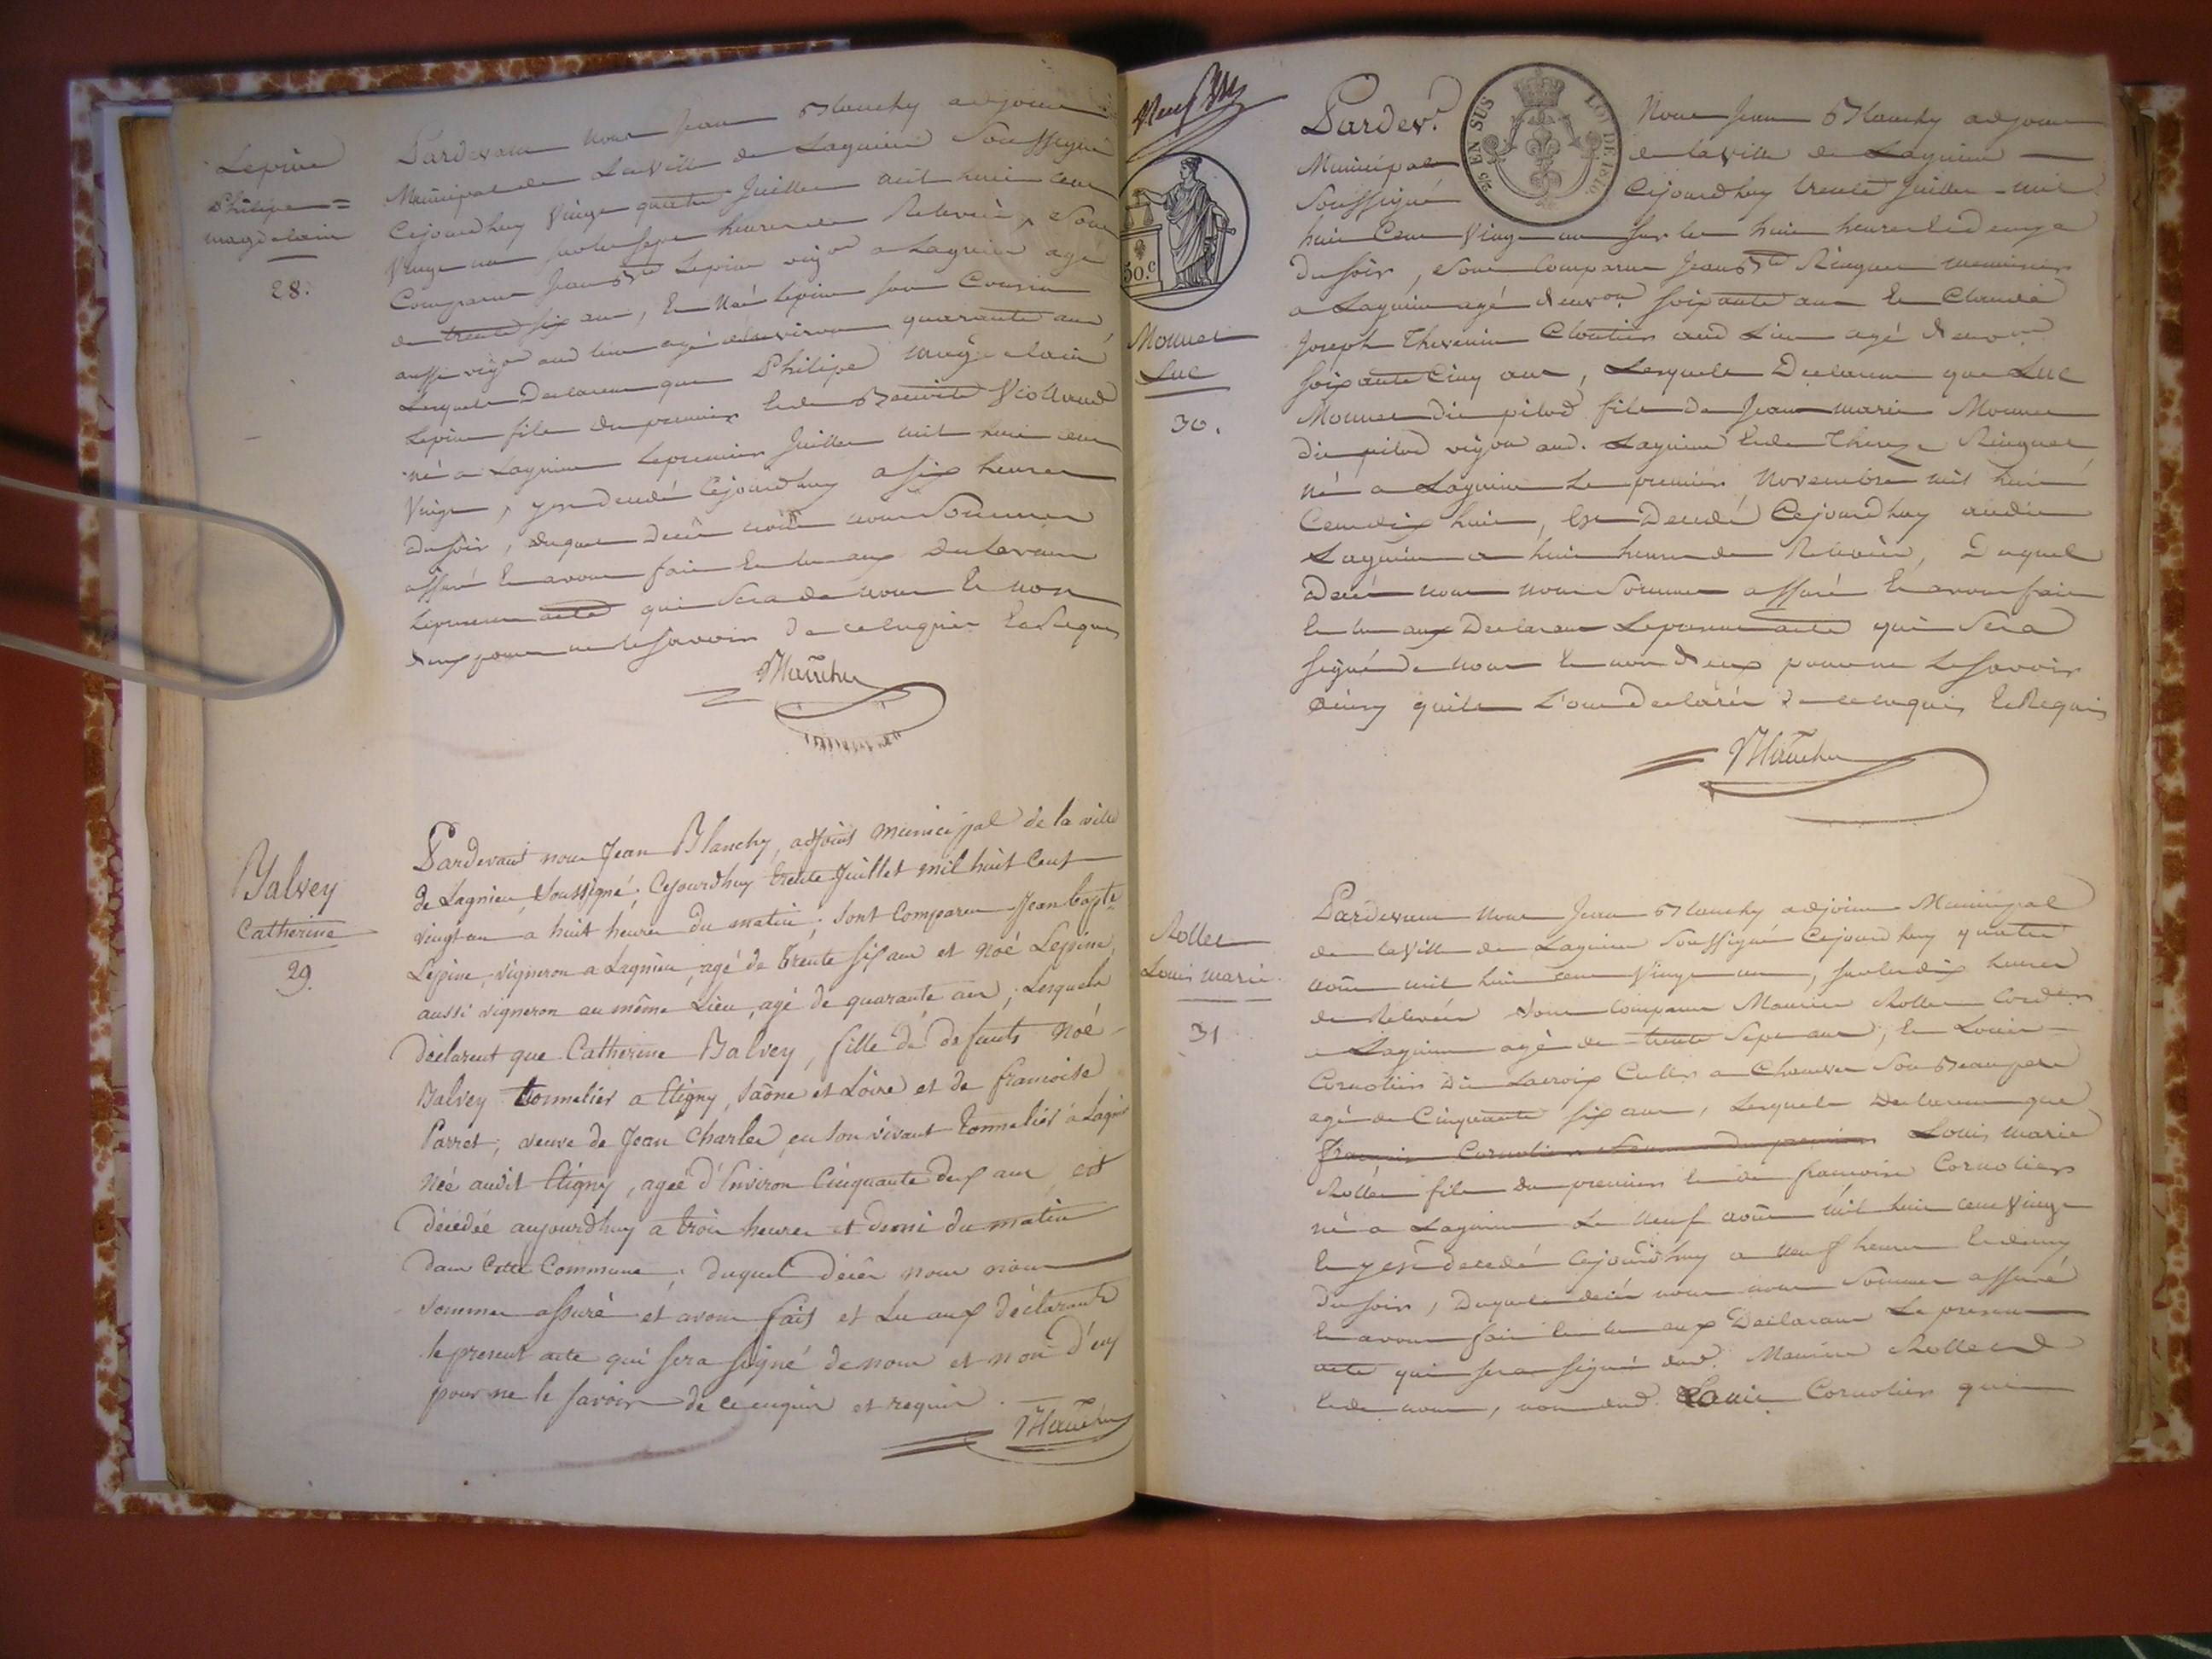 Lepine
Philipe=
magdelain
28.
Pardevant Nous Jean Blanchy adjoint
Municipal de La Ville de Lagnieu Soussigné
Cejourdhuy Vingt quatre Juillet mil huit cent
Vingt un sur les sept heures de Relevée, Sont
Comparu Jean Bte Lepine vigon a Lagnieu agé
de trente six ans, et Noé Lepine son Cousin
aussi vigon aud lieu agé denviron quarante ans
Lesquels Declarent que Philipe magdelain
Lepine fils du premier et de Benoite Violland
né a Lagnieu le premier Juillet mil huit cent
Vingt, y est decedé Cejourdhuy a six heures
du soir, duquel Decès nous nous Sommes
assuré et avons fait et lu aux Declarants
le present acte qui Sera de nous et non
deux pour ne le savoir de ce enquis et Requis
Blanchy
Balvey
Catherine
29.
Pardevant nous Jean Blanchy, adjoint municipal de la ville
de Lagnieu, Soussigné; Cejourdhuy trente Juillet mil huit Cent
vingt un a huit heures du matin; sont Comparu Jean bapte
Lepine, vigneron a Lagnieu, agé de trente six ans et Noé Lepine,
aussi vigneron au même Lieu, agé de quarante ans; Lesquels
déclarent que Catherine Balvey, fille de defunts Noé
Balvey tonnelier a Etigny, Saône et Loire et de francoise
Parret; veuve de Jean Charles, en son vivant tonnelier a Lagnieu
Née audit Etigny, agée d'Environ Cinquante deux ans, est
décedée aujourdhuy a trois heures et demi du matin
dans Cette Commune; duquel décès nous nous
sommes assuré et avons fait et Lu aux déclarants
le present acte qui sera signé de nous et non d'eux
pour ne le savoir de ce enquis et requis.
Blanchy
EN SUS
LOI DE 1816
50.c
Monnet
Luc
30.
Pardevt Nous Jean Blanchy adjoint
Municipal de la Ville de Lagnieu
Soussigné Cejourdhuy trente Juillet mil
huit Cent Vingt un sur les huit heures et demye
du soir, Sont Comparu Jean Bte Ringuet
a Lagnieu agé denvon soixante ans et Claude
Joseph Thevenin Cloutier aud Lieu agé denvon
soixante Cinq ans, Lesquels Declarent que Luc
Monnet dit pilod fils de Jean marie Monnet
dit pilod vigon aud. Lagnieu et de Thereze Ringuet
né a Lagnieu le premier Novembre mil huit
Cent dix huit, est Decedé Cejourdhuy audit
Lagnieu a huit heures de Relevée, Duquel
decès nous nous Sommes assuré et avons fait
et lu aux Declarants Le present acte qui Sera
signé de nous et non deux pour ne Le savoir
ainsy quils L'ont declaré de ce enquis et Requis
Blanchy
Rollet
Louis marie
31
Pardevant Nous Jean Blanchy adjoint Municipal
de la Ville de Lagnieu Soussigné Cejourdhuy quatre
août mil huit cent Vingt un, sur les dix heures
de Relevée Sont Comparu Maurice Rollet Cordier
a Lagnieu agé de trente Sept ans, et Louis
Cornotier Dit Lacroix Cultr a Son Beaupere
agé de Cinquante six ans, Lesquels Declarent que
Louis marie
Rollet fils du premier et de francoise Cornotier
né a Lagnieu Le Neuf août mil huit cent Vingt
et y est decedé Cejourdhuy a neuf heures et demy
du soir, Duquel decès nous nous Sommes assuré
et avons fait et lu aux Declarants Le present
acte qui sera signé dud. Maurice Rollet
et de nous, non dud. Louis Cornotier qui